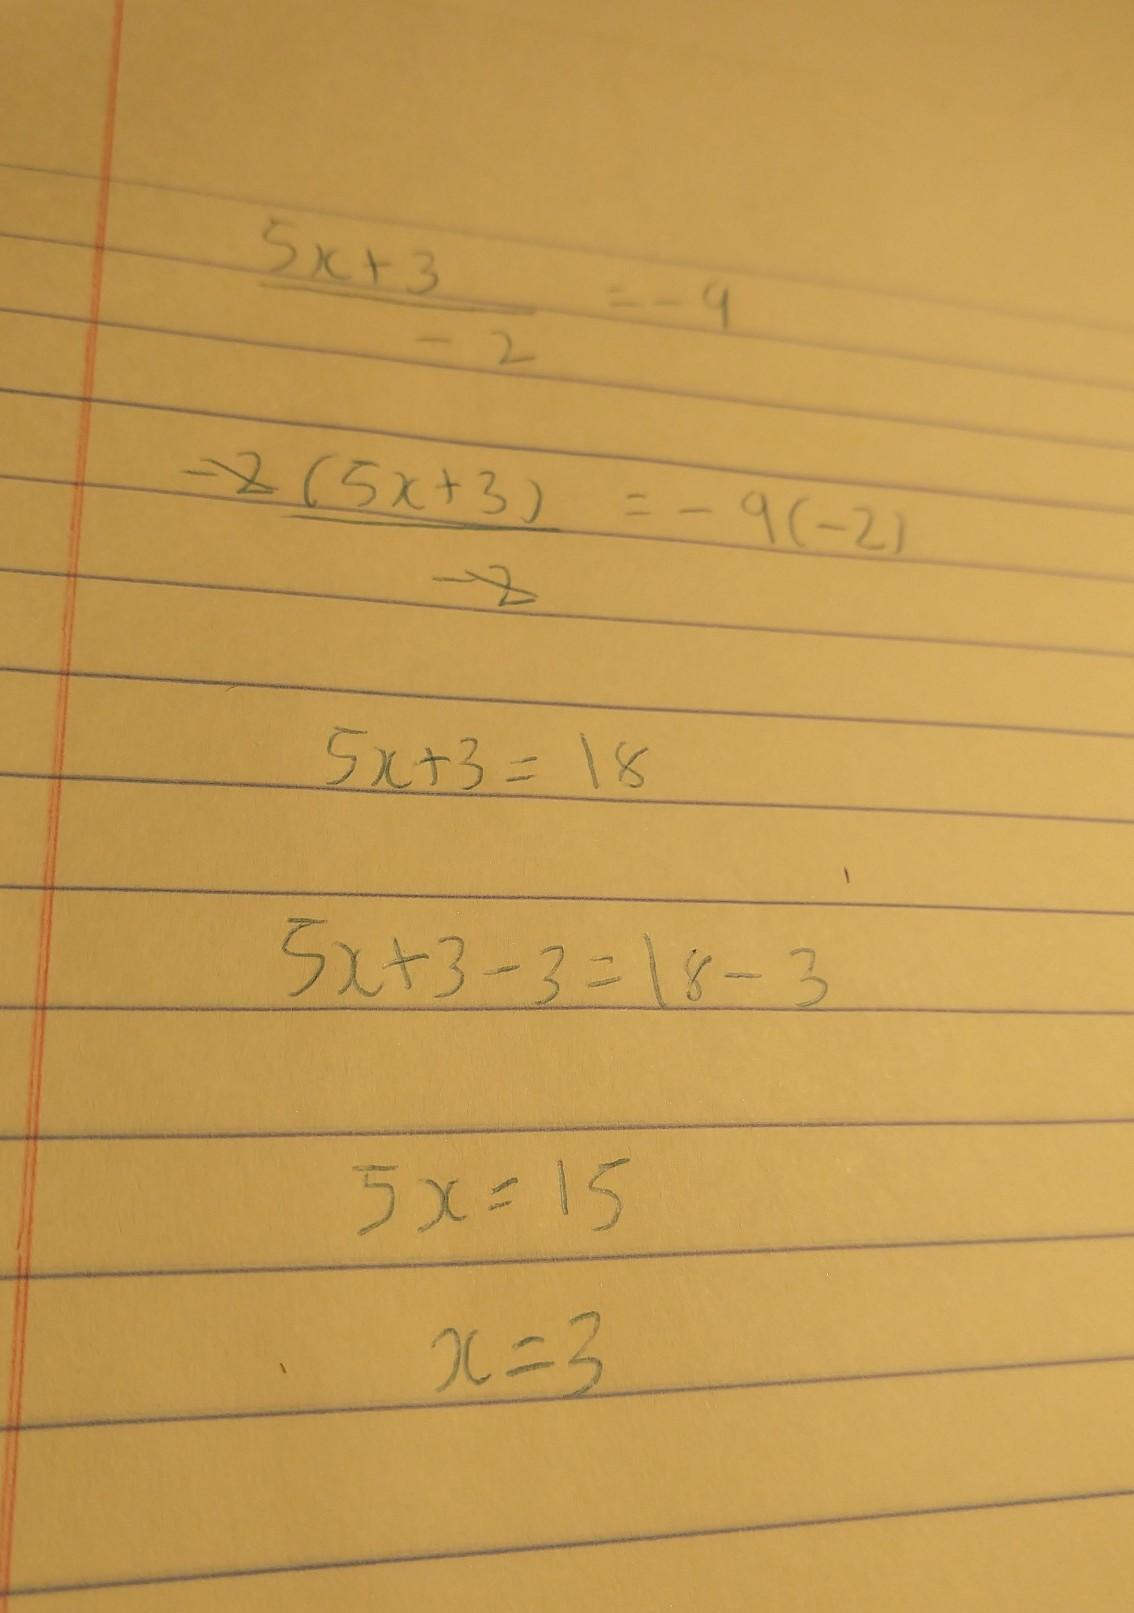 5x+3 / -2 = -9
-2(5x+3) / -2 = -9(-2)
5x+3=18
5x+3-3=18-3
5x=15
x=3